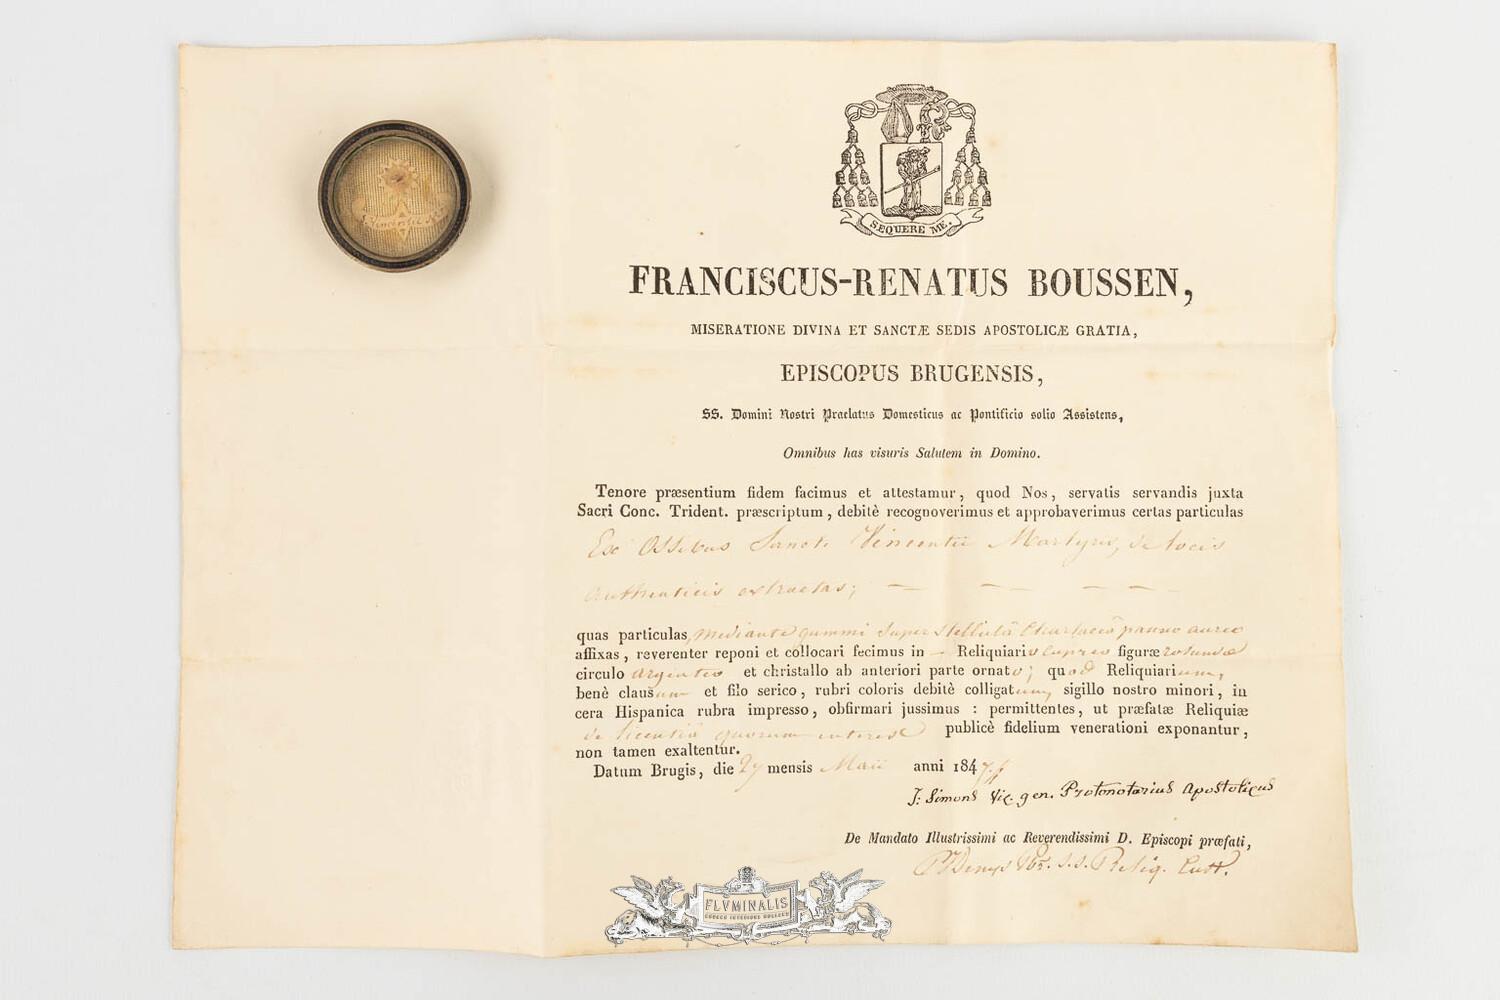 SEQUERE ME.
FRANCISCUS-RENATUS BOUSSEN,
MISERATIONE DIVINA ET SANCTÆ SEDIS APOSTOLICÆ GRATIA,
EPISCOPUS BRUGENSIS,
SS. Domini Nostri Praelatus Domesticus ac Pontificio solio Assistens,
Omnibus has visuris Salutem in Domino.
Tenore præsentium fidem facimus et attestamur, quod Nos, servatis servandis juxta
Sacri Conc. Trident. præscriptum, debitè recognoverimus et approbaverimus certas particulas
Ex Ossibus Sancti Vincentii Martyris, de locis
authenticis extractas;
quas particulas, mediante gummi super stellulâ chartaceâ panno aureo
affixas, reverenter reponi et collocari fecimus in — Reliquiario cupreo figuræ rotundæ
circulo argenteo et christallo ab anteriori parte ornato; quod Reliquiarium,
benè clausum et filo serico, rubri coloris debitè colligatum, sigillo nostro minori, in
cera Hispanica rubra impresso, obfirmari jussimus : permittentes, ut præfatæ Reliquiæ
de licentiâ quorum interest publicè fidelium venerationi exponantur,
non tamen exaltentur.
Datum Brugis, die 27 mensis Maii anni 1847.
J: Simons Vic. gen. Protonotarius Apostolicus
De Mandato Illustrissimi ac Reverendissimi D. Episcopi præfati,
S.S. Reliq. Cust.
FLVMINALIS